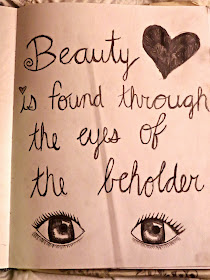 Beauty
is found through
the eyes of
the beholder